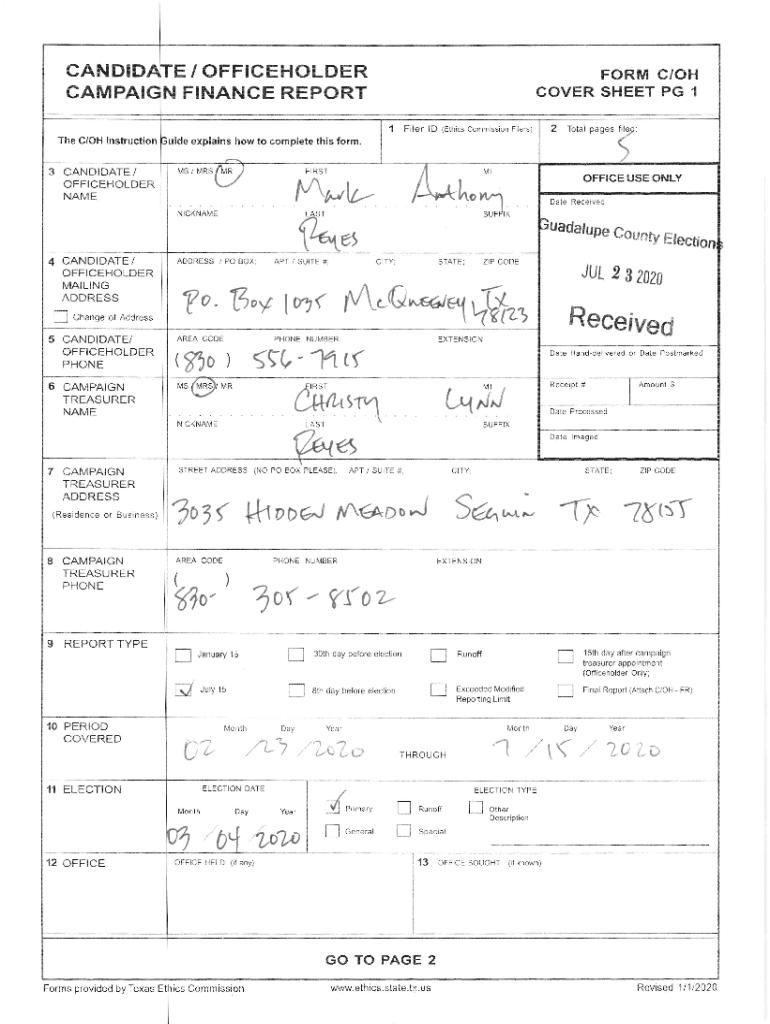 CANDIDATE / OFFICEHOLDER
CAMPAIGN FINANCE REPORT
FORM C/OH
COVER SHEET PG 1
The C/OH Instruction Guide explains how to complete this form.
1 Filer ID (Ethics Commission Filers)
2 Total pages filed:
5
3 CANDIDATE / OFFICEHOLDER NAME
MS / MRS / MR FIRST MI
Mark Anthony
NICKNAME LAST SUFFIX
REYES
OFFICE USE ONLY
Date Received
Guadalupe County Elections
JUL 23 2020
Received
4 CANDIDATE / OFFICEHOLDER MAILING ADDRESS
Change of Address
ADDRESS / PO BOX; APT / SUITE #; CITY; STATE; ZIP CODE
P.O. Box 1035 McQueeney, Tx 78123
5 CANDIDATE/ OFFICEHOLDER PHONE
AREA CODE PHONE NUMBER EXTENSION
(830) 556-7915
Date Hand-delivered or Date Postmarked
6 CAMPAIGN TREASURER NAME
MS / MRS / MR FIRST MI
CHRISTY LYNN
NICKNAME LAST SUFFIX
REYES
Receipt # Amount $
Date Processed
Date Imaged
7 CAMPAIGN TREASURER ADDRESS
(Residence or Business)
STREET ADDRESS (NO PO BOX PLEASE); APT / SUITE #; CITY; STATE; ZIP CODE
3035 HIDDEN MEADOW SEGUIN TX 78155
8 CAMPAIGN TREASURER PHONE
AREA CODE PHONE NUMBER EXTENSION
(830-) 305-8502
9 REPORT TYPE
January 15 30th day before election Runoff 15th day after campaign treasurer appointment (Officeholder Only)
July 15 8th day before election Exceeded Modified Reporting Limit Final Report (Attach C/OH - FR)
10 PERIOD COVERED
Month Day Year
02 /23/2020
THROUGH
Month Day Year
7 /15/ 2020
11 ELECTION
ELECTION DATE
Month Day Year
03 /04/2020
ELECTION TYPE
Primary Runoff Other Description
General Special
12 OFFICE
OFFICE HELD (if any)
13 OFFICE SOUGHT (if known)
GO TO PAGE 2
Forms provided by Texas Ethics Commission www.ethics.state.tx.us Revised 1/1/2020